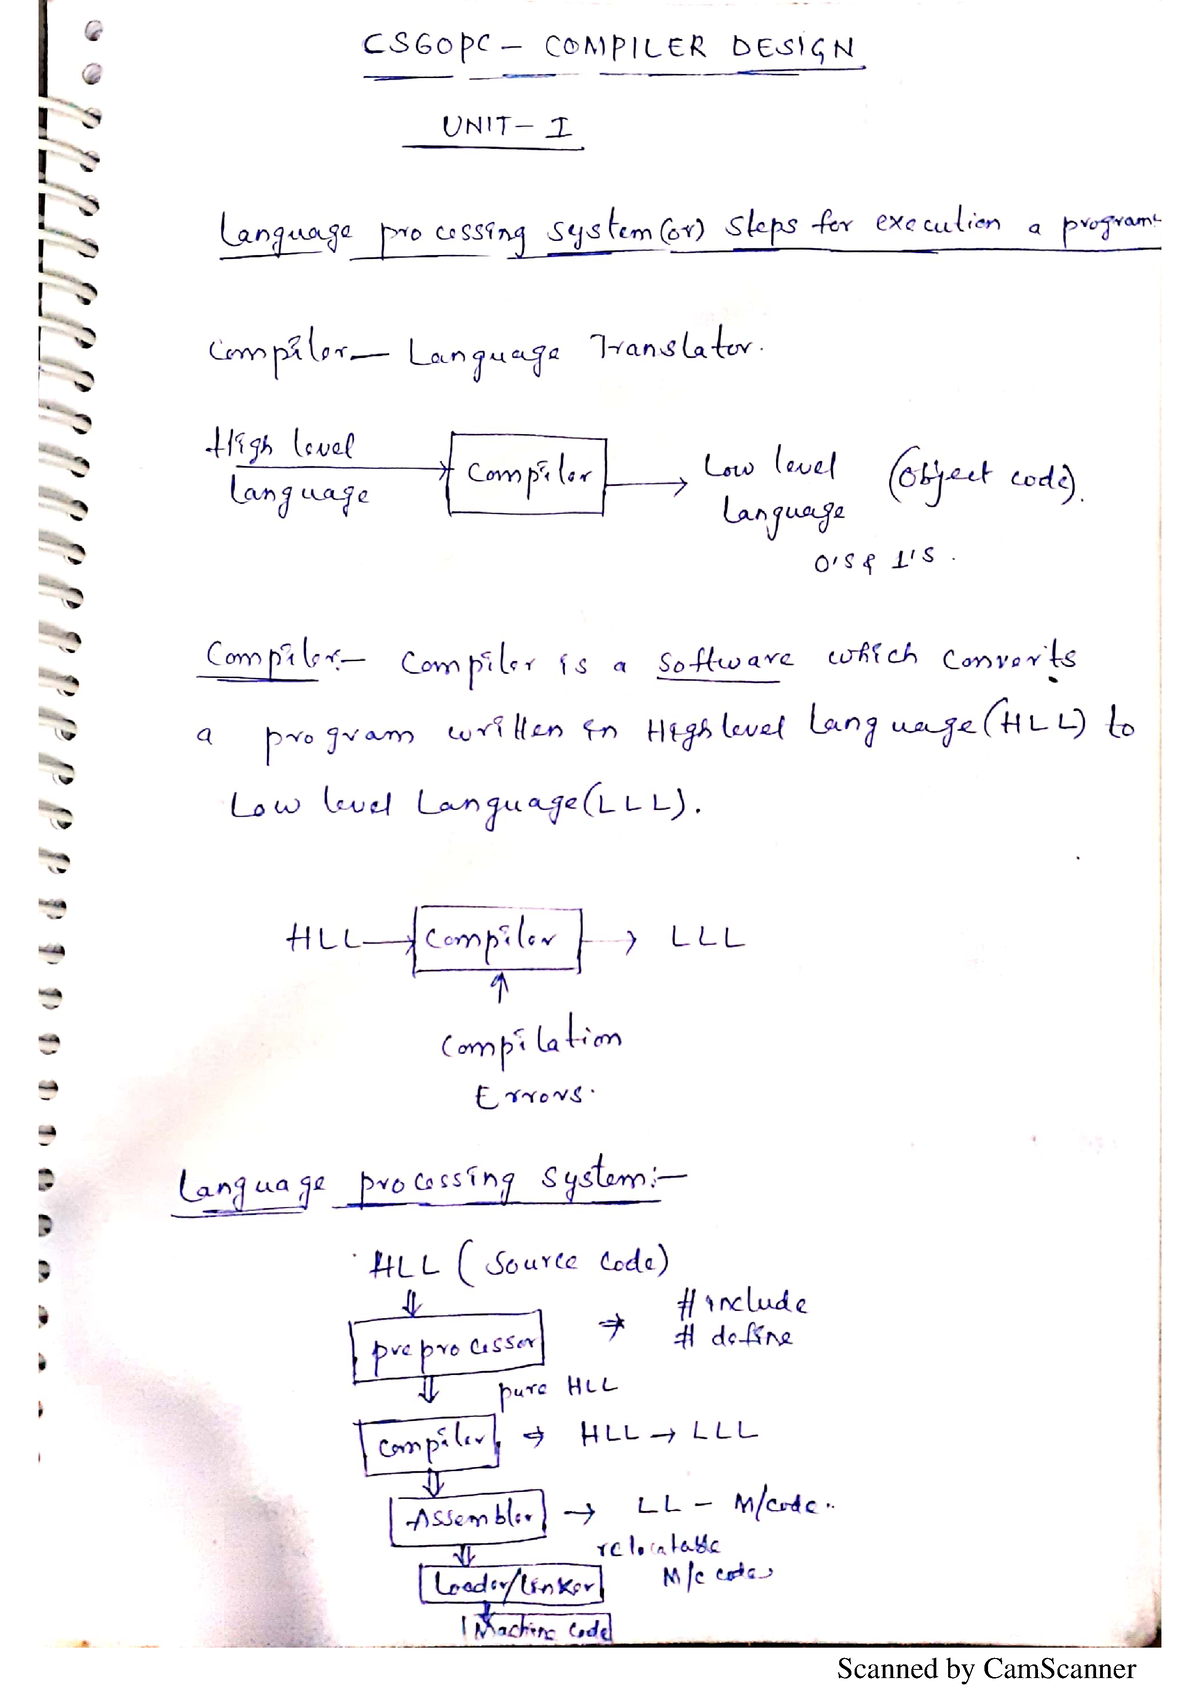 CS60PC - COMPILER DESIGN
UNIT - I
Language processing system (or) steps for execution a program:-
Compiler - Language Translator.
High level Language
Compiler
Low level Language (Object code).
0's & 1's.
Compiler:- Compiler is a software which converts
a program written in High level Language (HLL) to
Low level Language (LLL).
HLL → Compiler → LLL
Compilation
Errors.
Language processing system:-
HLL (Source code)
⇓
preprocessor ⇒ #include
# define
⇓ pure HLL
Compiler ⇒ HLL → LLL
⇓
Assembler → LL - M/code..
⇓ relocatable
Loader/Linker M/c code
Machine Code
Scanned by CamScanner